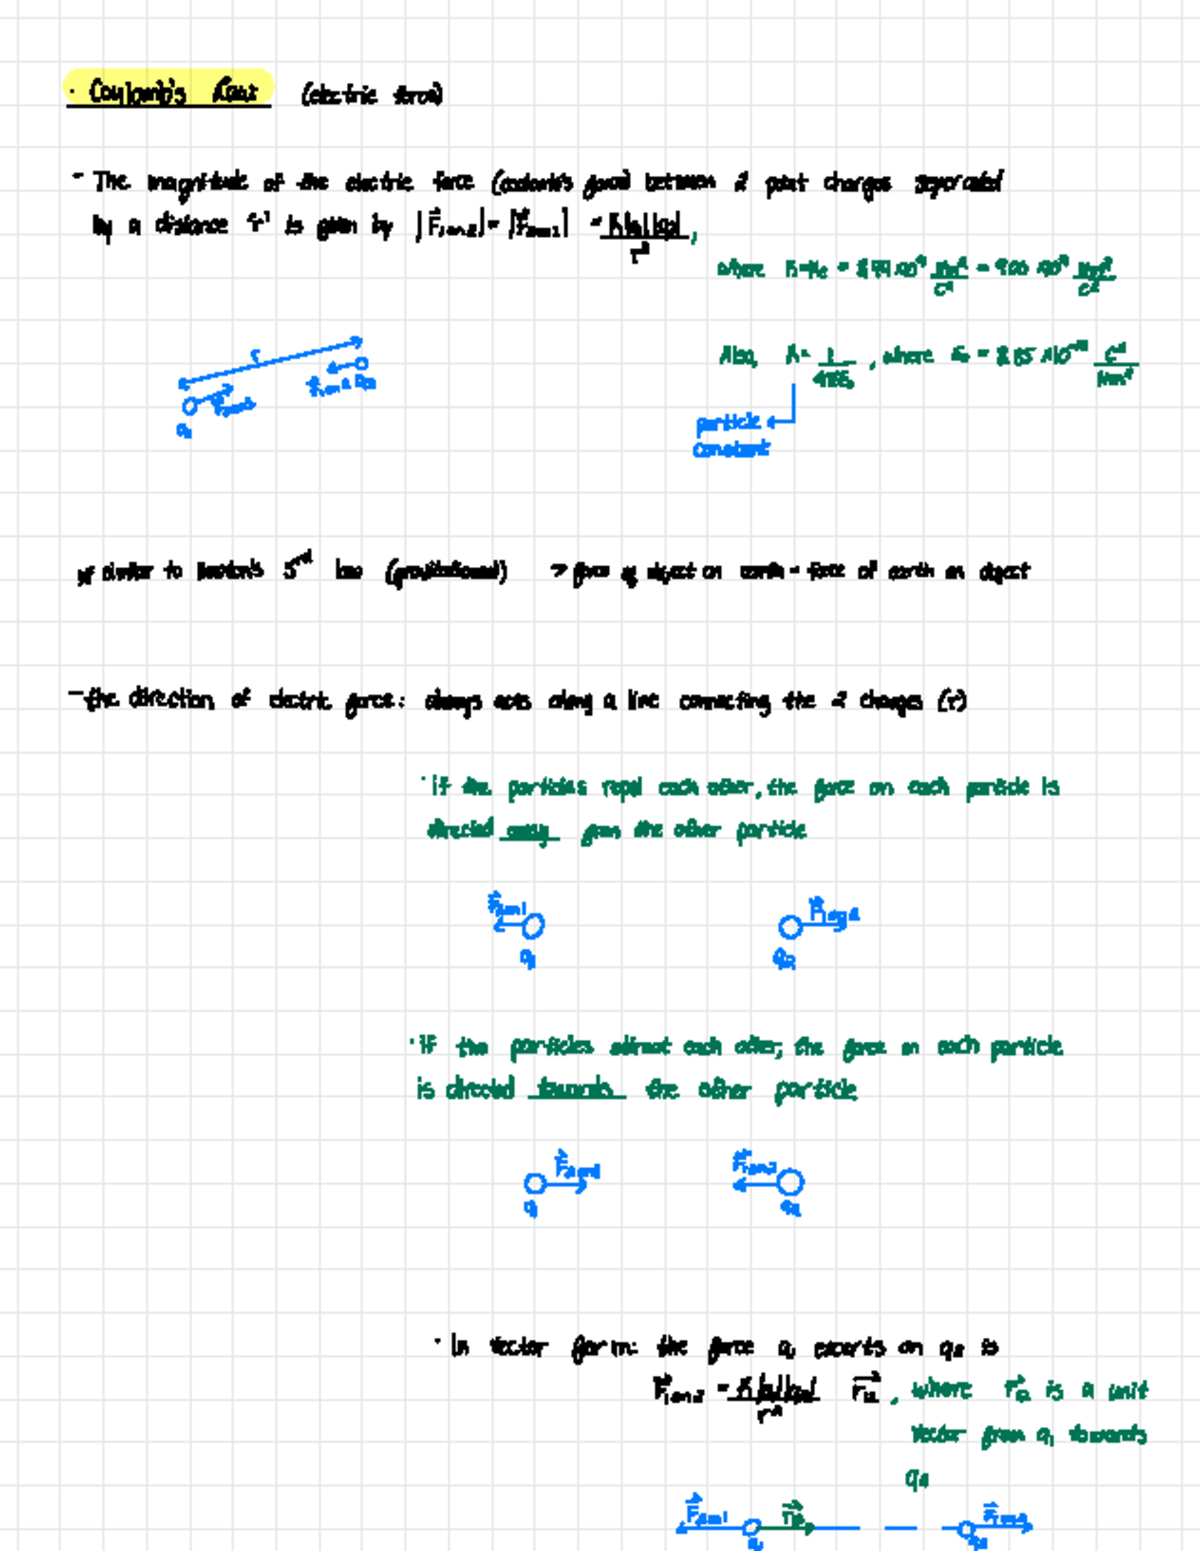 · Coulomb's Law (electric force)
- The magnitude of the electric force (coulomb's force) between 2 point charges seperated
by a distance 'r' is given by |F⃗1on2| = |F⃗2on1| = K|q1||q2| / r²,
where K=Ke = 8.99 x10⁹ Nm²/C² = 9.00 x10⁹ Nm²/C²
r
Also, K = 1/4πε₀, where ε₀ = 8.85 x10⁻¹² C²/Nm²
F⃗2on1 F⃗1on2 q2
q1
particle
constant
similar to Newton's 3rd law (gravitational) → force of object on earth = force of earth on object
- the direction of electric force: always acts along a line connecting the 2 charges (r)
· if the particles repel each other, the force on each particle is
directed away from the other particle
F⃗2on1 F⃗1on2
q1 q2
· if the particles attract each other, the force on each particle
is directed towards the other particle
F⃗2on1 F⃗1on2
q1 q2
· In vector form: the force q1 exerts on q2 is
F⃗1on2 = K|q1||q2| / r² r⃗12, where r⃗12 is a unit
vector from q1 towards
q2
F⃗2on1 r⃗12 F⃗1on2
q1 q2